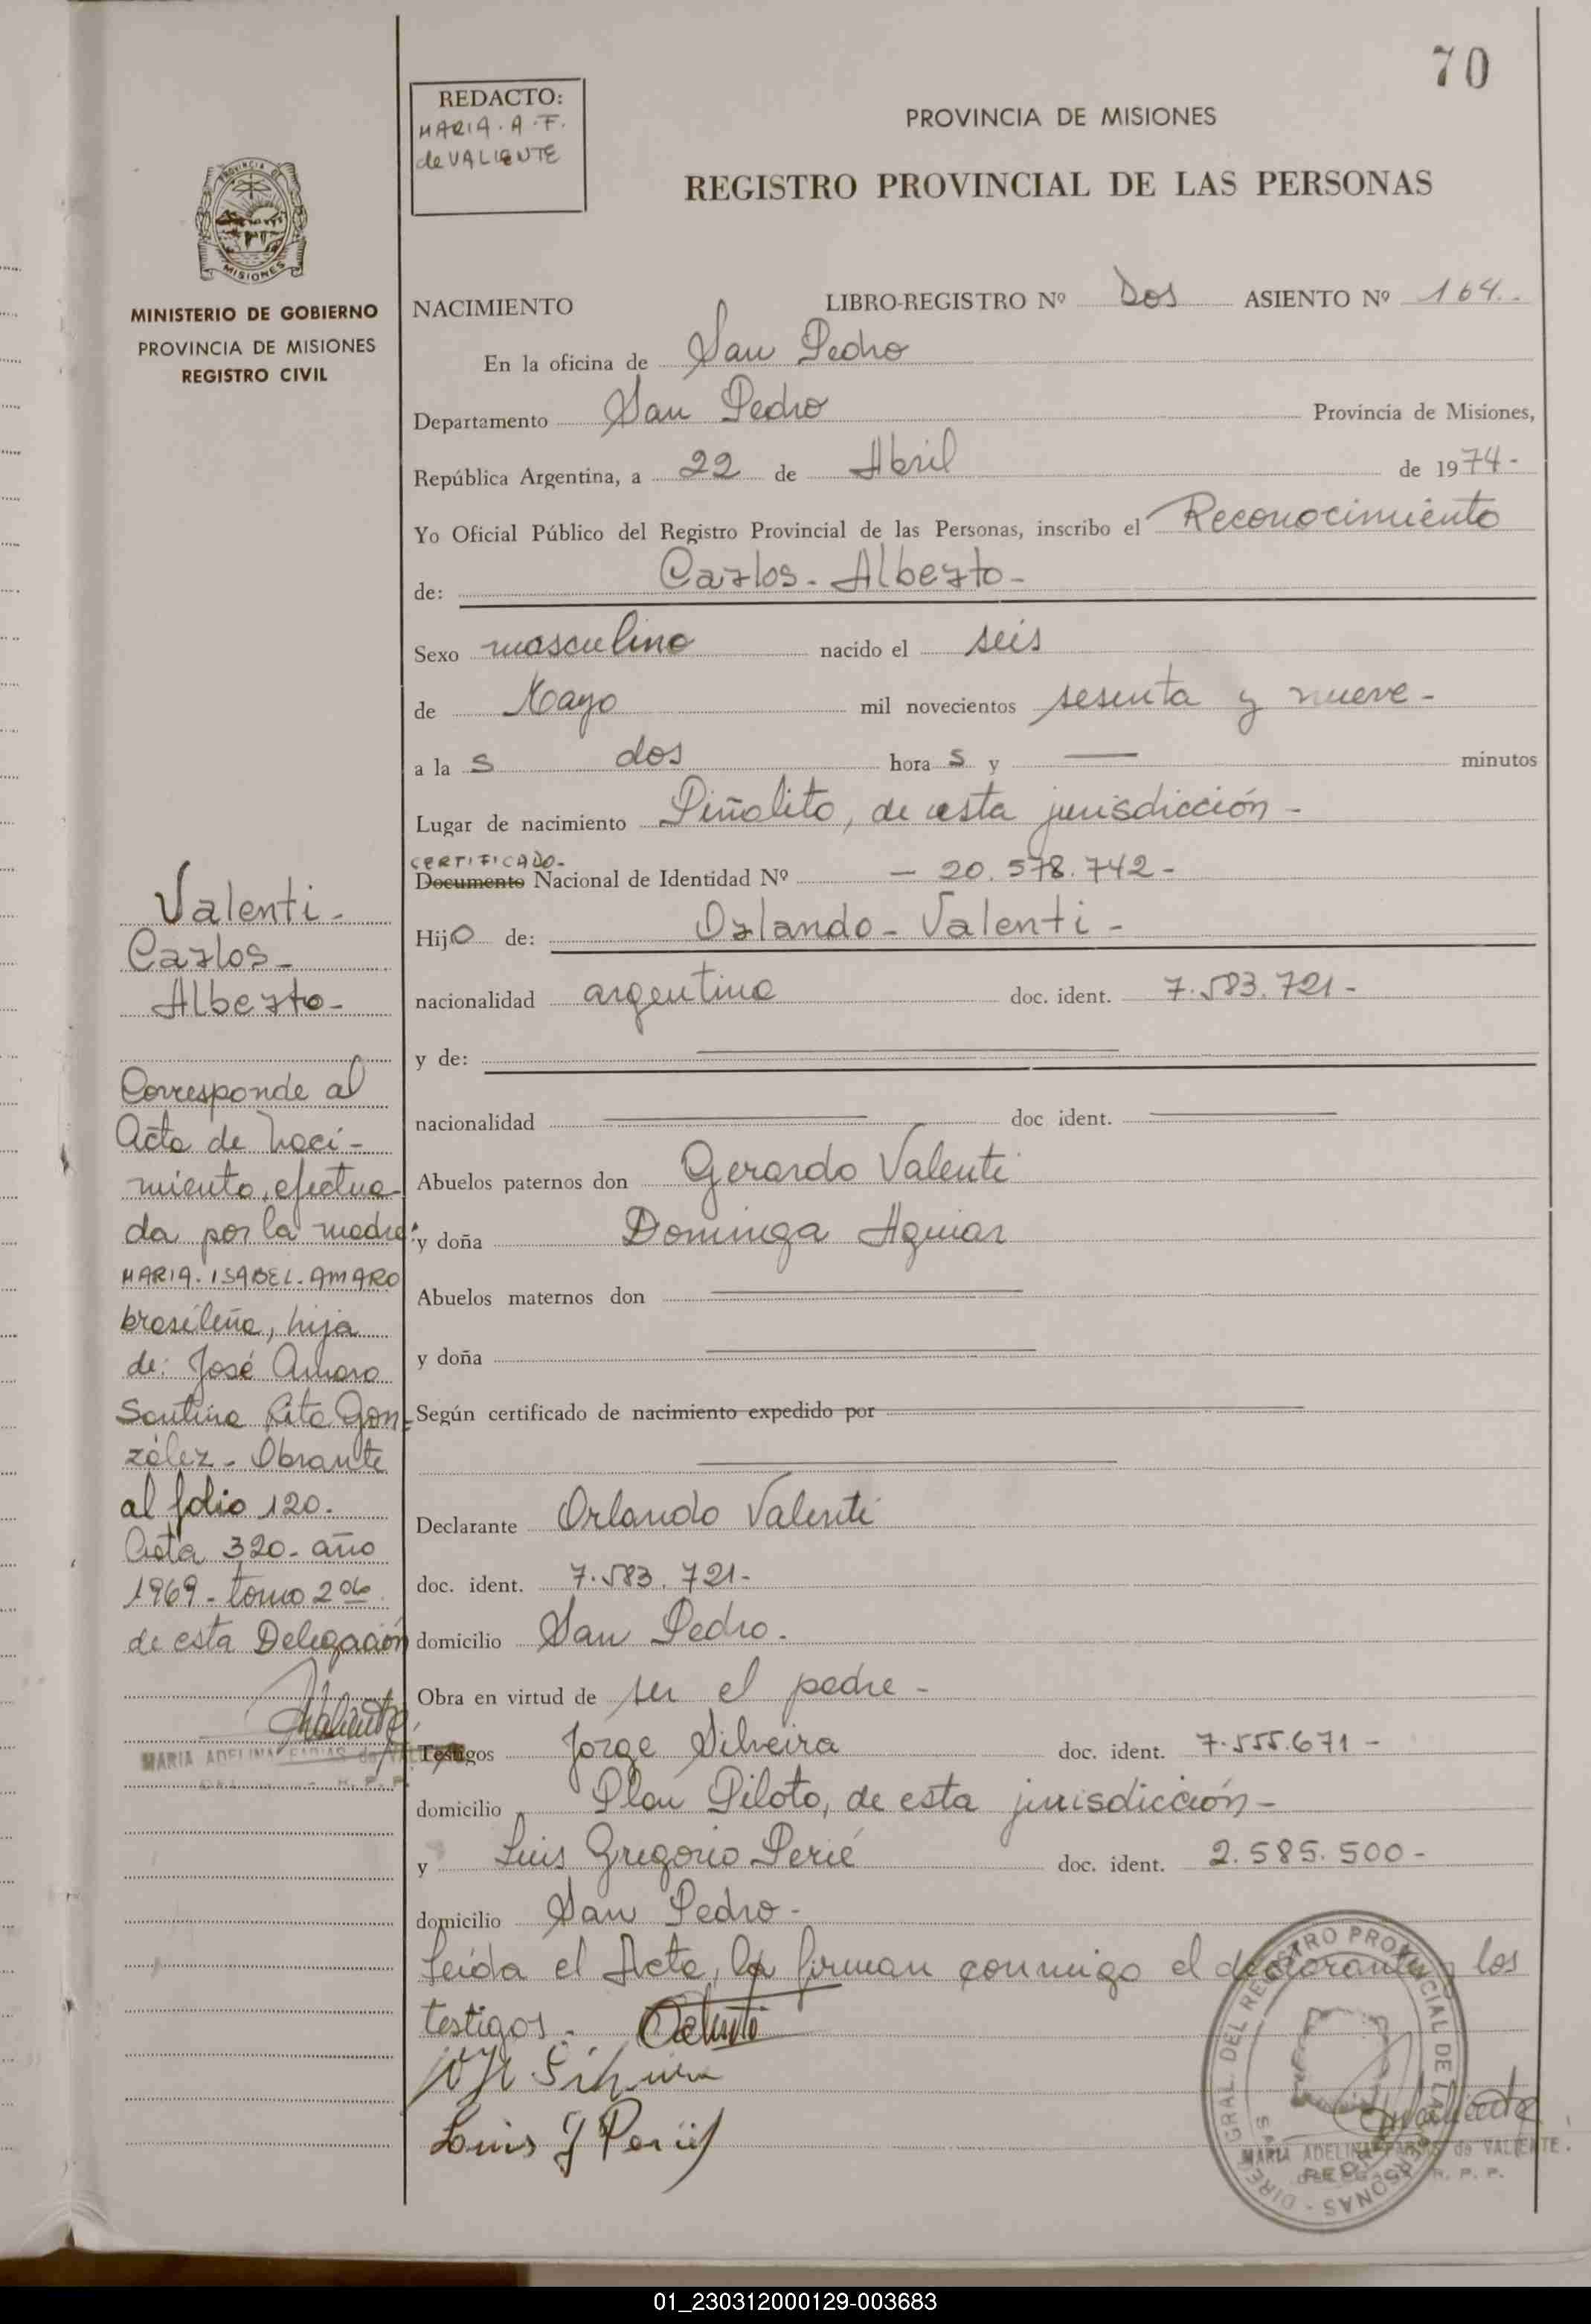 70
REDACTO:
MARIA. A. F.
de VALIENTE
PROVINCIA DE MISIONES
REGISTRO PROVINCIAL DE LAS PERSONAS
PROVINCIA DE
MISIONES
MINISTERIO DE GOBIERNO
PROVINCIA DE MISIONES
REGISTRO CIVIL
NACIMIENTO LIBRO-REGISTRO Nº Dos ASIENTO Nº 164.
En la oficina de San Pedro
Departamento San Pedro Provincia de Misiones,
República Argentina, a 22 de Abril de 1974-
Yo Oficial Público del Registro Provincial de las Personas, inscribo el Reconocimiento
de: Carlos - Alberto -
Sexo masculino nacido el seis
de Mayo mil novecientos sesenta y nueve -
a la s dos hora s y — minutos
Lugar de nacimiento Piñalito, de esta jurisdicción -
CERTIFICADO-
Documento Nacional de Identidad Nº — 20.578.742 -
Hijo de: Orlando - Valenti -
nacionalidad argentina doc. ident. 7.583.721 -
y de:
nacionalidad doc ident.
Abuelos paternos don Gerardo Valenti
y doña Dominga Aguiar
Abuelos maternos don
y doña
Según certificado de nacimiento expedido por
Declarante Orlando Valenti
doc. ident. 7.583.721-
domicilio San Pedro.
Obra en virtud de ser el padre -
Testigos Jorge Silveira doc. ident. 7.555.671 -
domicilio Plan Piloto, de esta jurisdicción -
y Luis Gregorio Perié doc. ident. 2.585.500 -
domicilio San Pedro -
Leída el Acta, la firman conmigo el declarante y los
testigos.
Luis G Perié
Valenti -
Carlos -
Alberto -
Corresponde al
Acta de Naci-
miento, efectua-
da por la madre:
MARIA. ISABEL. AMARO
brasileña, hija
de: José Amaro
Santina Rita Gon-
zález - Obrante
al folio 120.
Acta 320 - año
1969 - tomo 2do
de esta Delegación
MARIA ADELINA FARIAS de VALIENTE
R. P. P.
DIREC. GRAL. DEL REGISTRO PROVINCIAL DE LAS PERSONAS
MARIA ADELINA FARIAS de VALIENTE.
R. P. P.
01_230312000129-003683